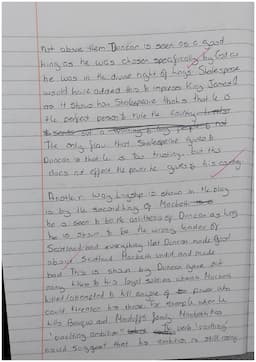 not above them Duncan is seen as a good
king as he was chosen specifically by God as
he was in the divine right of kings. Shakespeare
would have added this to impress King James I
as it shows how Shakespeare thinks that he is
the perfect person to rule the
The only flaw that Shakespeare gives to
Duncan is that he is too trusting, but this
does not effect the power he gives to his
Another way kingship is shown in the play
is by the second king of Macbeth
he is seen to be the antithesis of Duncan as king
he is shown to be the wrong leader of
Scotland and everything that Duncan made good
about Scotland Macbeth undid and made
bad. This is shown by Duncan gave out
many titles to his loyal soldiers whereas Macbeth
killed/attempted to kill anyone of power who
could threaten his throne. For example when he
kills Banquo and Macduffs family. Macbeth has
'vaulting ambition' The verb 'vaulting'
could suggest that his ambition is still